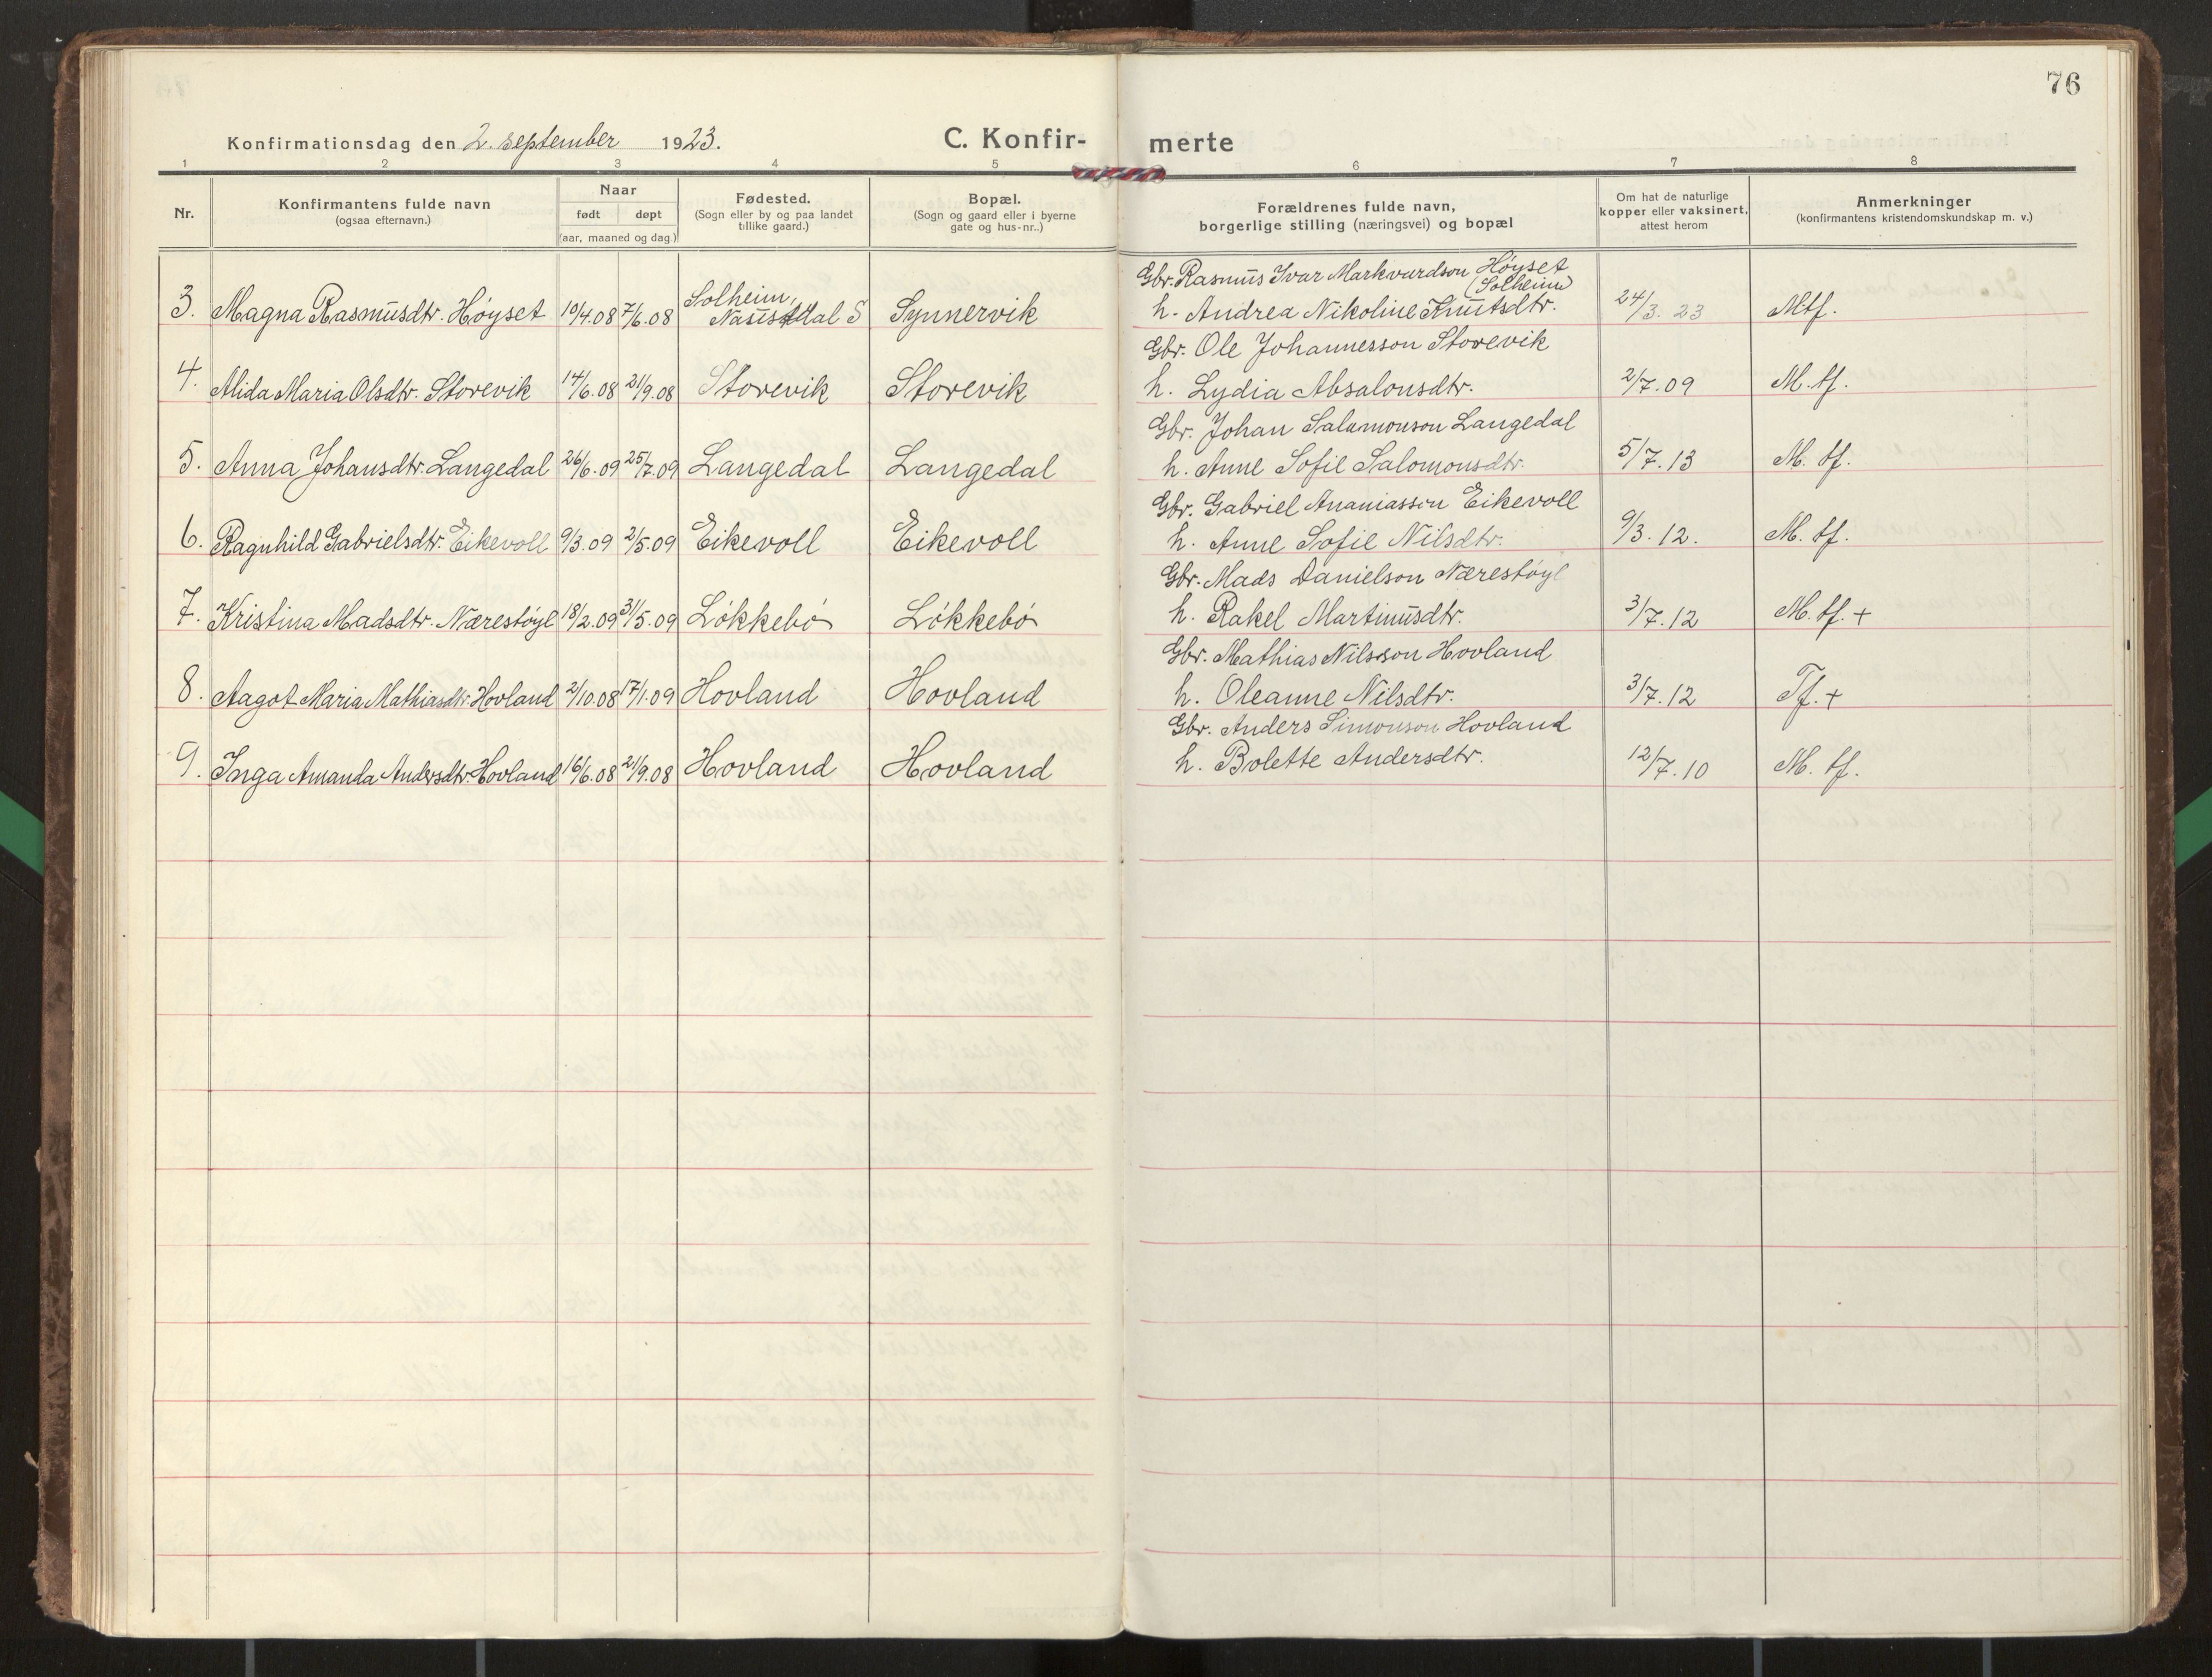 76
Konfirmationsdag den 2. september 1923.
C. Konfir-
merte
1 2 3 4 5 6 7 8
Nr.
Konfirmantens fulde navn
(ogsaa efternavn.)
Naar
født døpt
(aar, maaned og dag)
Fødested.
(Sogn eller by og paa landet
tillike gaard.)
Bopæl.
(Sogn og gaard eller i byerne
gate og hus-nr..)
Forældrenes fulde navn,
borgerlige stilling (næringsvei) og bopæl
Om hat de naturlige
kopper eller vaksinert,
attest herom
Anmerkninger
(konfirmantens kristendomskundskap m. v.)
Gbr. Rasmus Ivar Markvardson Höyset
(Solheim)
Solheim,
3. Magna Rasmusdtr. Höyset 10/4.08 7/6.08 Naustdal S Synnervik h. Andrea Nikoline Knutsdtr. 24/3.23 Mtf.
Gbr. Ole Johannesson Storevik
4. Alida Maria Olsdtr. Storevik 14/6.08 21/9.08 Storevik Storevik h. Lydia Absalonsdtr. 2/7.09 M. tf.
Gbr. Johan Salamonson Langedal
5. Anna Johansdtr. Langedal 26/6.09 25/7.09 Langedal Langedal h. Anne Sofie Salomonsdtr. 5/7.13 M. tf.
Gbr. Gabriel Ananiasson Eikevoll
6. Ragnhild Gabrielsdtr. Eikevoll 9/3.09 2/5.09 Eikevoll Eikevoll h. Anne Sofie Nilsdtr. 9/3.12. M. tf.
Gbr. Mads Danielson Nærestöyl
7. Kristina Madsdtr. Nærestöyl 18/2.09 31/5.09 Lökkebö Lökkebö h. Rakel Martinusdtr. 3/7.12 M. tf. +
Gbr. Mathias Nilsson Hovland
8. Aagot Maria Mathiasdtr. Hovland 2/10.08 17/1.09 Hovland Hovland h. Oleanne Nilsdtr. 3/7.12 Tf. +
Gbr. Anders Simonson Hovland
9. Inga Amanda Andersdtr. Hovland 16/6.08 21/9.08 Hovland Hovland h. Bolette Andersdtr. 12/7.10 M. tf.